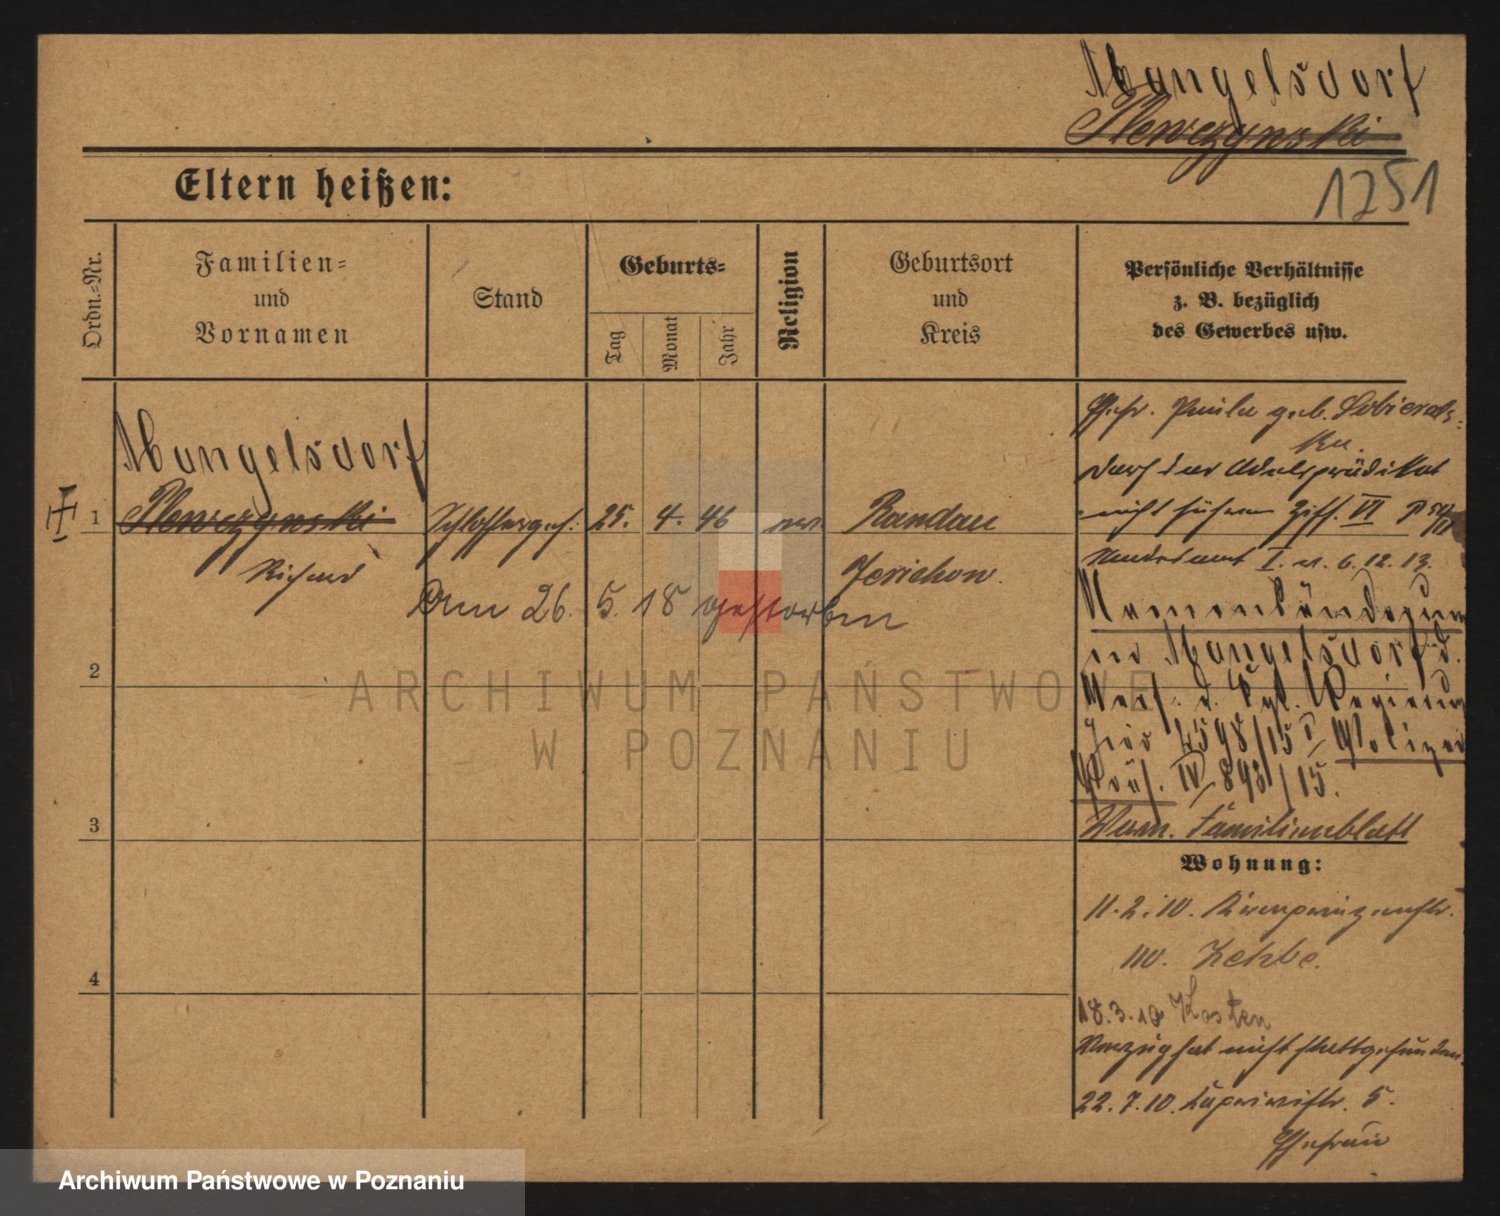 Mangelsdorf
Plewczynski
1251
Eltern heißen:
Ordn.-Nr.
Familien-
und
Vornamen
Stand
Geburts-
Tag
Monat
Jahr
Religion
Geburtsort
und
Kreis
Persönliche Verhältnisse
z. B. bezüglich
des Gewerbes usw.
Mangelsdorf
1 Plewczynski Schlosserges. 25. 4. 46 Randau
Richard Jerichow.
Den 26. 5. 18 gestorben
Ehefr. Paula geb. Sobierals-
ka.
darf das Adelsprädikat
nicht führen Ziff. VI
I. v. 6. 12. 13.
Namensänderung
in Mangelsdorf d.
Verf. d. Kgl. Regierung
4598/15 I Polizei
Präs. IV 893/15.
Verm. Familienblatt
2
3
4
Wohnung:
11.2.10. Kronprinzenstr.
110. Zehbe.
18.3.10 Kosten
Verzug hat nicht stattgefunden
22.7.10. 5.
Ehefrau
ARCHIWUM PAŃSTWOWE
W POZNANIU
Archiwum Państwowe w Poznaniu